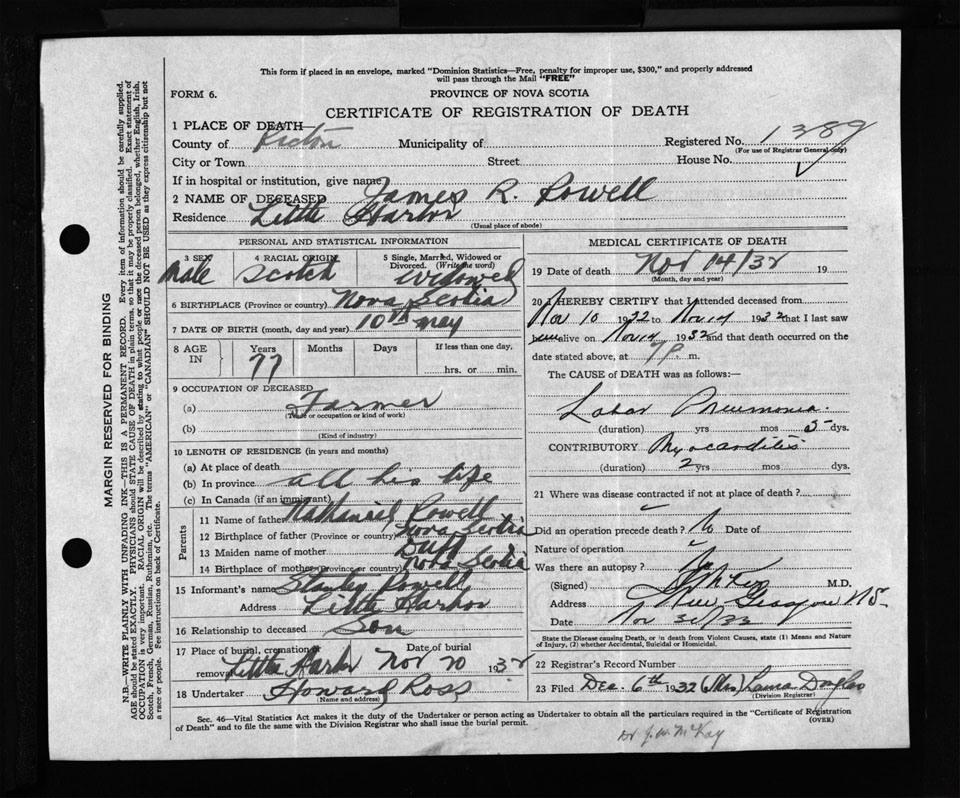 This form if placed in an envelope, marked "Dominion Statistics—Free, penalty for improper use, $300," and properly addressed
will pass through the Mail "FREE"
FORM 6.
PROVINCE OF NOVA SCOTIA
CERTIFICATE OF REGISTRATION OF DEATH
1 PLACE OF DEATH—
County of Pictou Municipality of Registered No. 1389
(For use of Registrar General only)
City or Town Street House No.
If in hospital or institution, give name
2 NAME OF DECEASED James R. Powell
Residence Little Harbor
(Usual place of abode)
PERSONAL AND STATISTICAL INFORMATION
3 SEX 4 RACIAL ORIGIN 5 Single, Married, Widowed or Divorced. (Write the word)
Male Scotch Widowed
6 BIRTHPLACE (Province or country) Nova Scotia
7 DATE OF BIRTH (month, day and year) 10th May
8 AGE IN Years Months Days If less than one day,
77 hrs. or min.
9 OCCUPATION OF DECEASED
(a) Farmer
(Trade or occupation or kind of work)
(b)
(Kind of industry)
10 LENGTH OF RESIDENCE (in years and months)
(a) At place of death
(b) In province all his life
(c) In Canada (if an immigrant)
Parents
11 Name of father Nathaniel Powell
12 Birthplace of father (Province or country) Nova Scotia
13 Maiden name of mother Duff
14 Birthplace of mother (Province or country) Nova Scotia
15 Informant's name Stanley Powell
Address Little Harbor
16 Relationship to deceased Son
17 Place of burial, cremation or removal Little Harbor Date of burial Nov 20 1932
18 Undertaker Howard Ross
(Name and address)
MEDICAL CERTIFICATE OF DEATH
19 Date of death Nov 14/32 19
(Month, day and year)
20 I HEREBY CERTIFY that I attended deceased from
Nov 10 1932 to Nov 14 1932 that I last saw
alive on Nov 14 1932 and that death occurred on the
date stated above, at m.
The CAUSE of DEATH was as follows:—
Lobar Pneumonia.
(duration) yrs mos 5 dys.
CONTRIBUTORY Myocarditis
(duration) 2 yrs mos dys.
21 Where was disease contracted if not at place of death?
Did an operation precede death? No Date of
Nature of operation
Was there an autopsy? No
(Signed) M.D.
Address New Glasgow NS.
Date Nov
State the Disease causing Death, or in death from Violent Causes, state (1) Means and Nature
of Injury, (2) whether Accidental, Suicidal or Homicidal.
22 Registrar's Record Number
23 Filed Dec. 6th 1932 (Mrs) Laura Douglas
(Division Registrar)
Sec. 46—Vital Statistics Act makes it the duty of the Undertaker or person acting as Undertaker to obtain all the particulars required in the "Certificate of Registration
of Death" and to file the same with the Division Registrar who shall issue the burial permit. (OVER)
Dr J. W. McKay
MARGIN RESERVED FOR BINDING
N.B.—WRITE PLAINLY WITH UNFADING INK—THIS IS A PERMANENT RECORD. Every item of information should be carefully supplied.
AGE should be stated EXACTLY. PHYSICIANS should STATE CAUSE OF DEATH in plain terms, so that it may be properly classified. Exact statement of
OCCUPATION is very important. RACIAL ORIGIN will be described by stating to what people or race the deceased person belonged, whether English, Irish,
Scotch, French, German, Russian, Ruthenian, etc. The terms "AMERICAN" or "CANADIAN" SHOULD NOT BE USED as they express citizenship but not
a race or people. See instructions on back of Certificate.